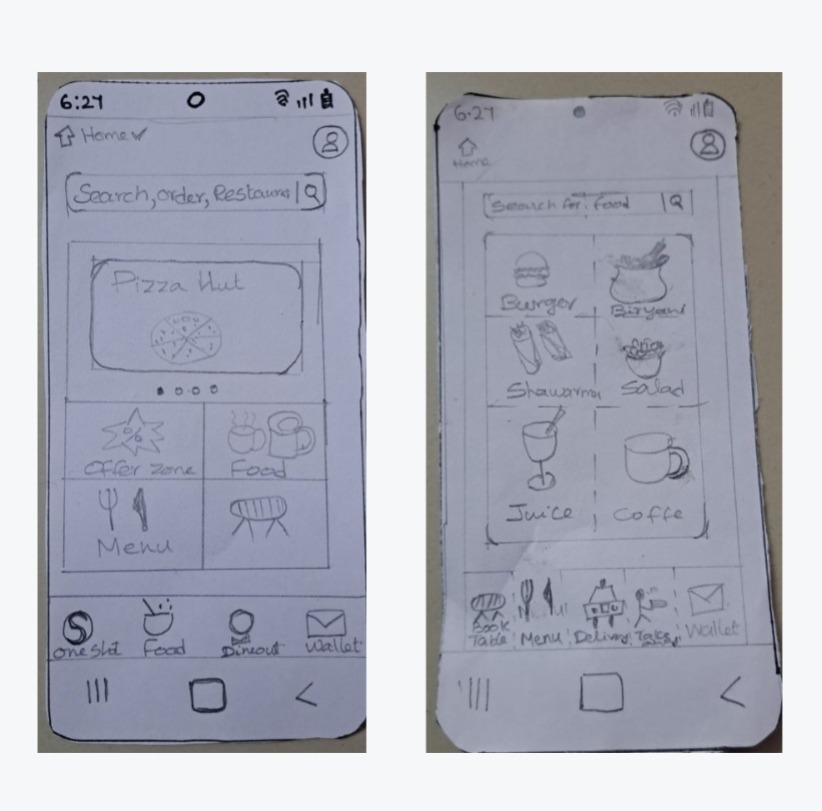 6:27
Home
Search, order, Restaurant
Pizza Hut
%
Offer zone Food
Menu
Food Dineout Wallet
6:27
Home
Search for: Food
Burger Biryani
Shawarma Salad
Juice Coffe
Book
Table Menu Delivery Take Wallet